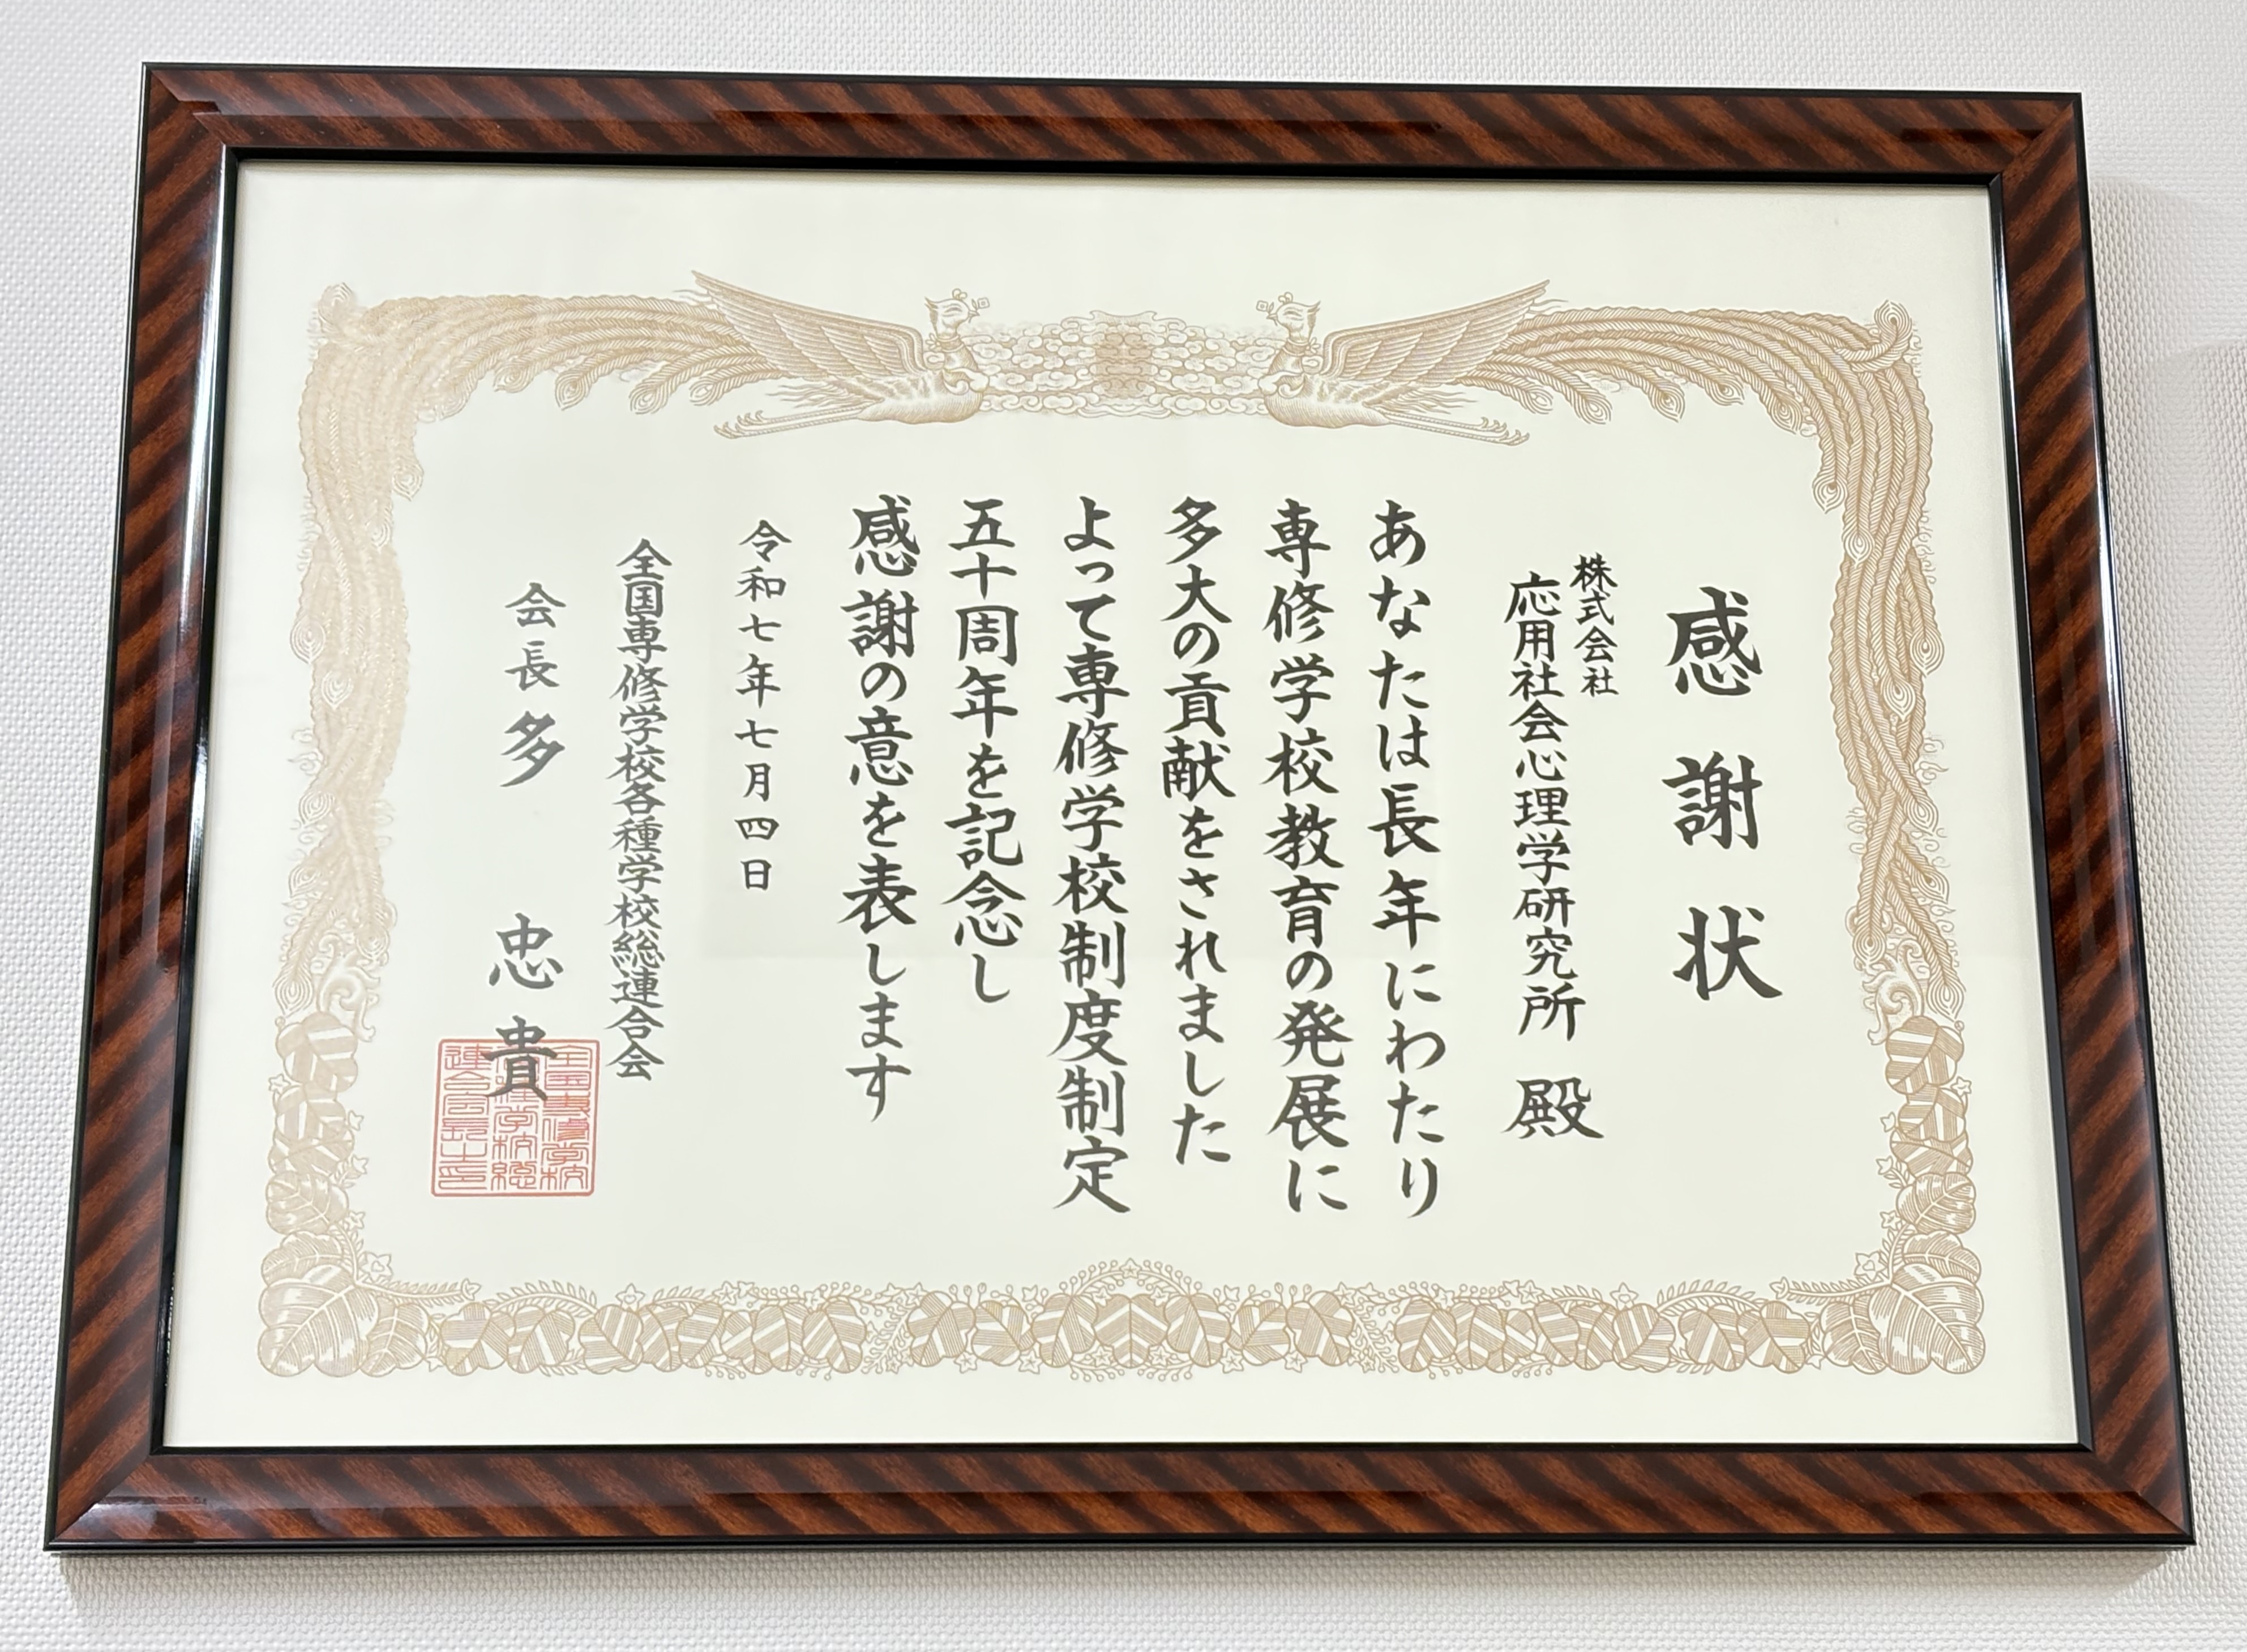 感謝状
株式会社
応用社会心理学研究所 殿
あなたは長年にわたり
専修学校教育の発展に
多大の貢献をされました
よって専修学校制度制定
五十周年を記念し
感謝の意を表します
令和七年七月四日
全国専修学校各種学校総連合会
会長 多 忠貴